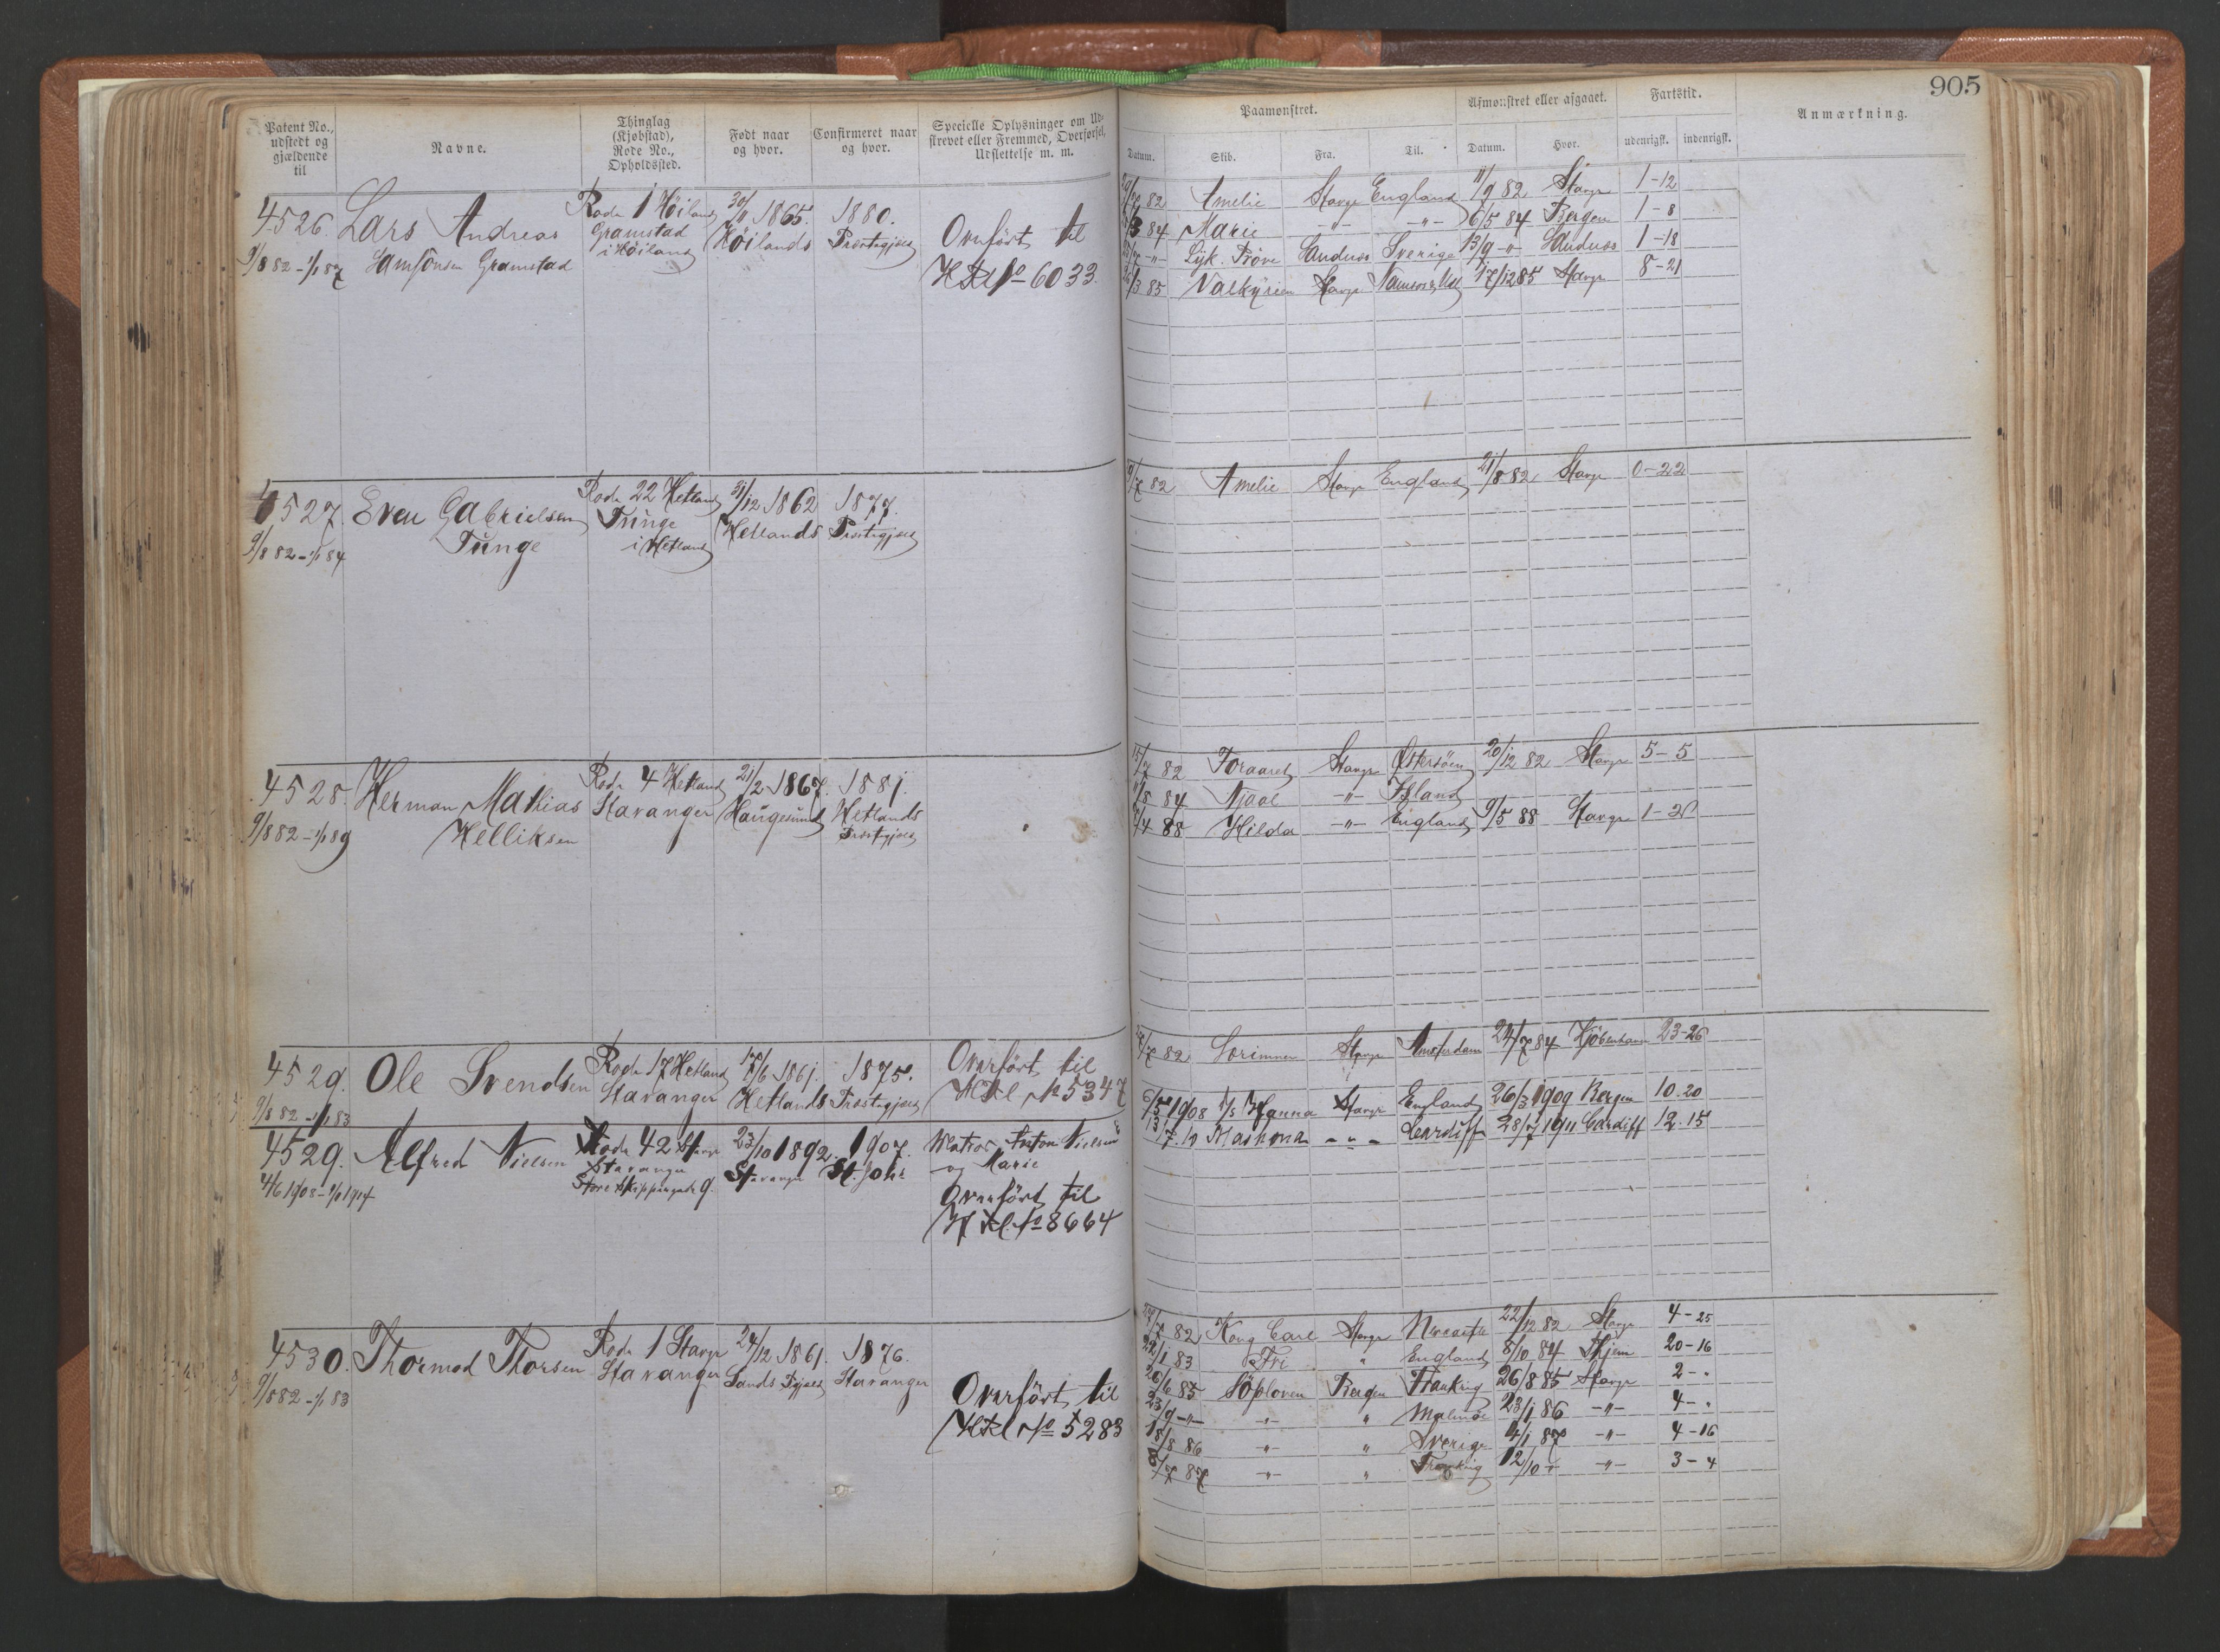 905
Patent No., udstedt og gjældende til
Navne.
Thinglag (Kjøbstad), Rode No., Opholdssted.
Født naar og hvor.
Confirmeret naar og hvor.
Specielle Oplysninger om Udskrevet eller Fremmed, Overførsel, Udslettelse m. m.
Paamønstret.
Afmønstret eller afgaaet.
Fartstid.
Anmærkning.
Datum. Skib. Fra. Til. Datum. Hvor. udenrigsk. indenrigsk.
4526. Lars Andreas Rode 1 Höiland 30/11 1865. 1880. Ovnfört til
9/8 82 - 1/1 87 Samsonsen Gramstad Gramstad i Höiland Höilands Præstegjæld HRl No 6033.
82 Amelie Stavgr England 11/9 82 Stavgr 1-12
84 Marie -"- -"- 6/5 84 Bergen 1-8
-"- Lyk. Pröve Sandnes Sverige 13/9 -"- Sandnes 1-18
/3 85 Valkyrien Stavgr 17/12 85 Stavgr 8-21
4527. Even Gabrielsen Rode 22 Hetland 31/12 1862 1877.
9/8 82 - 1/1 84 Tunge Tunge i Hetland Hetlands Præstegjæld
/7 82 Amelie Stavgr England 21/8 82 Stavgr 0-22
4528. Herman Mathias Rode 4 Hetland 21/2 1867. 1881.
9/8 82 - 1/1 89 Helliksen Stavanger Haugesund Hetlands Præstegjæld
15/7 82 Foraaret Stavgr Østersöen 20/12 82 Stavgr 5-5
/8 84 Njaal -"- Island
/4 88 Hilda -"- England 9/5 88 Stavgr
4529. Ole Svendsen Rode 17 Hetland 17/6 1861. 1875. Overfört til
9/8 82 - 1/1 83 Stavanger Hetlands Præstegjæld HRl No 5347
/7 82 Sorimner Stavgr Amsterdam 24/7 84 Kjöbenhavn 23-26
4529. Alfred Nielsen Rode 42 Stavgr 23/10 1892. 1907. Matros Anton Nielsen
4/6 1908 - 1/1 1914 Stavanger Store Skippergade 9. Stavanger St. Johs og Marie
Overfört til
HRl. No 8664
6/5 1908 Hanna Stavgr England 26/3 1909 Bergen 10.20
10 Mashona - " - Cardiff 28/7 1911 Cardiff 12.15
4530. Thormod Thorsen Rode 1 Stavgr 24/12 1861. 1876.
9/8 82 - 1/1 83 Stavanger Sands Pgjæld Stavanger Overfört til
HRl No 5283
/7 82 Kong Carl Stavgr Newcastle 22/12 82 Stavgr 4-25
22/1 83 Fri " England 8/10 84 20-16
26/6 85 Söploven Bergen Frankrig 26/8 85 Stavgr 2-"
23/9 -"- -"- " Malmöe 23/1 86 -"- 4-"
18/8 86 -"- " Sverige 4/1 87 -"- 4-16
8/7 87 -"- " Frankrig 12/10 -"- -"- 3-4